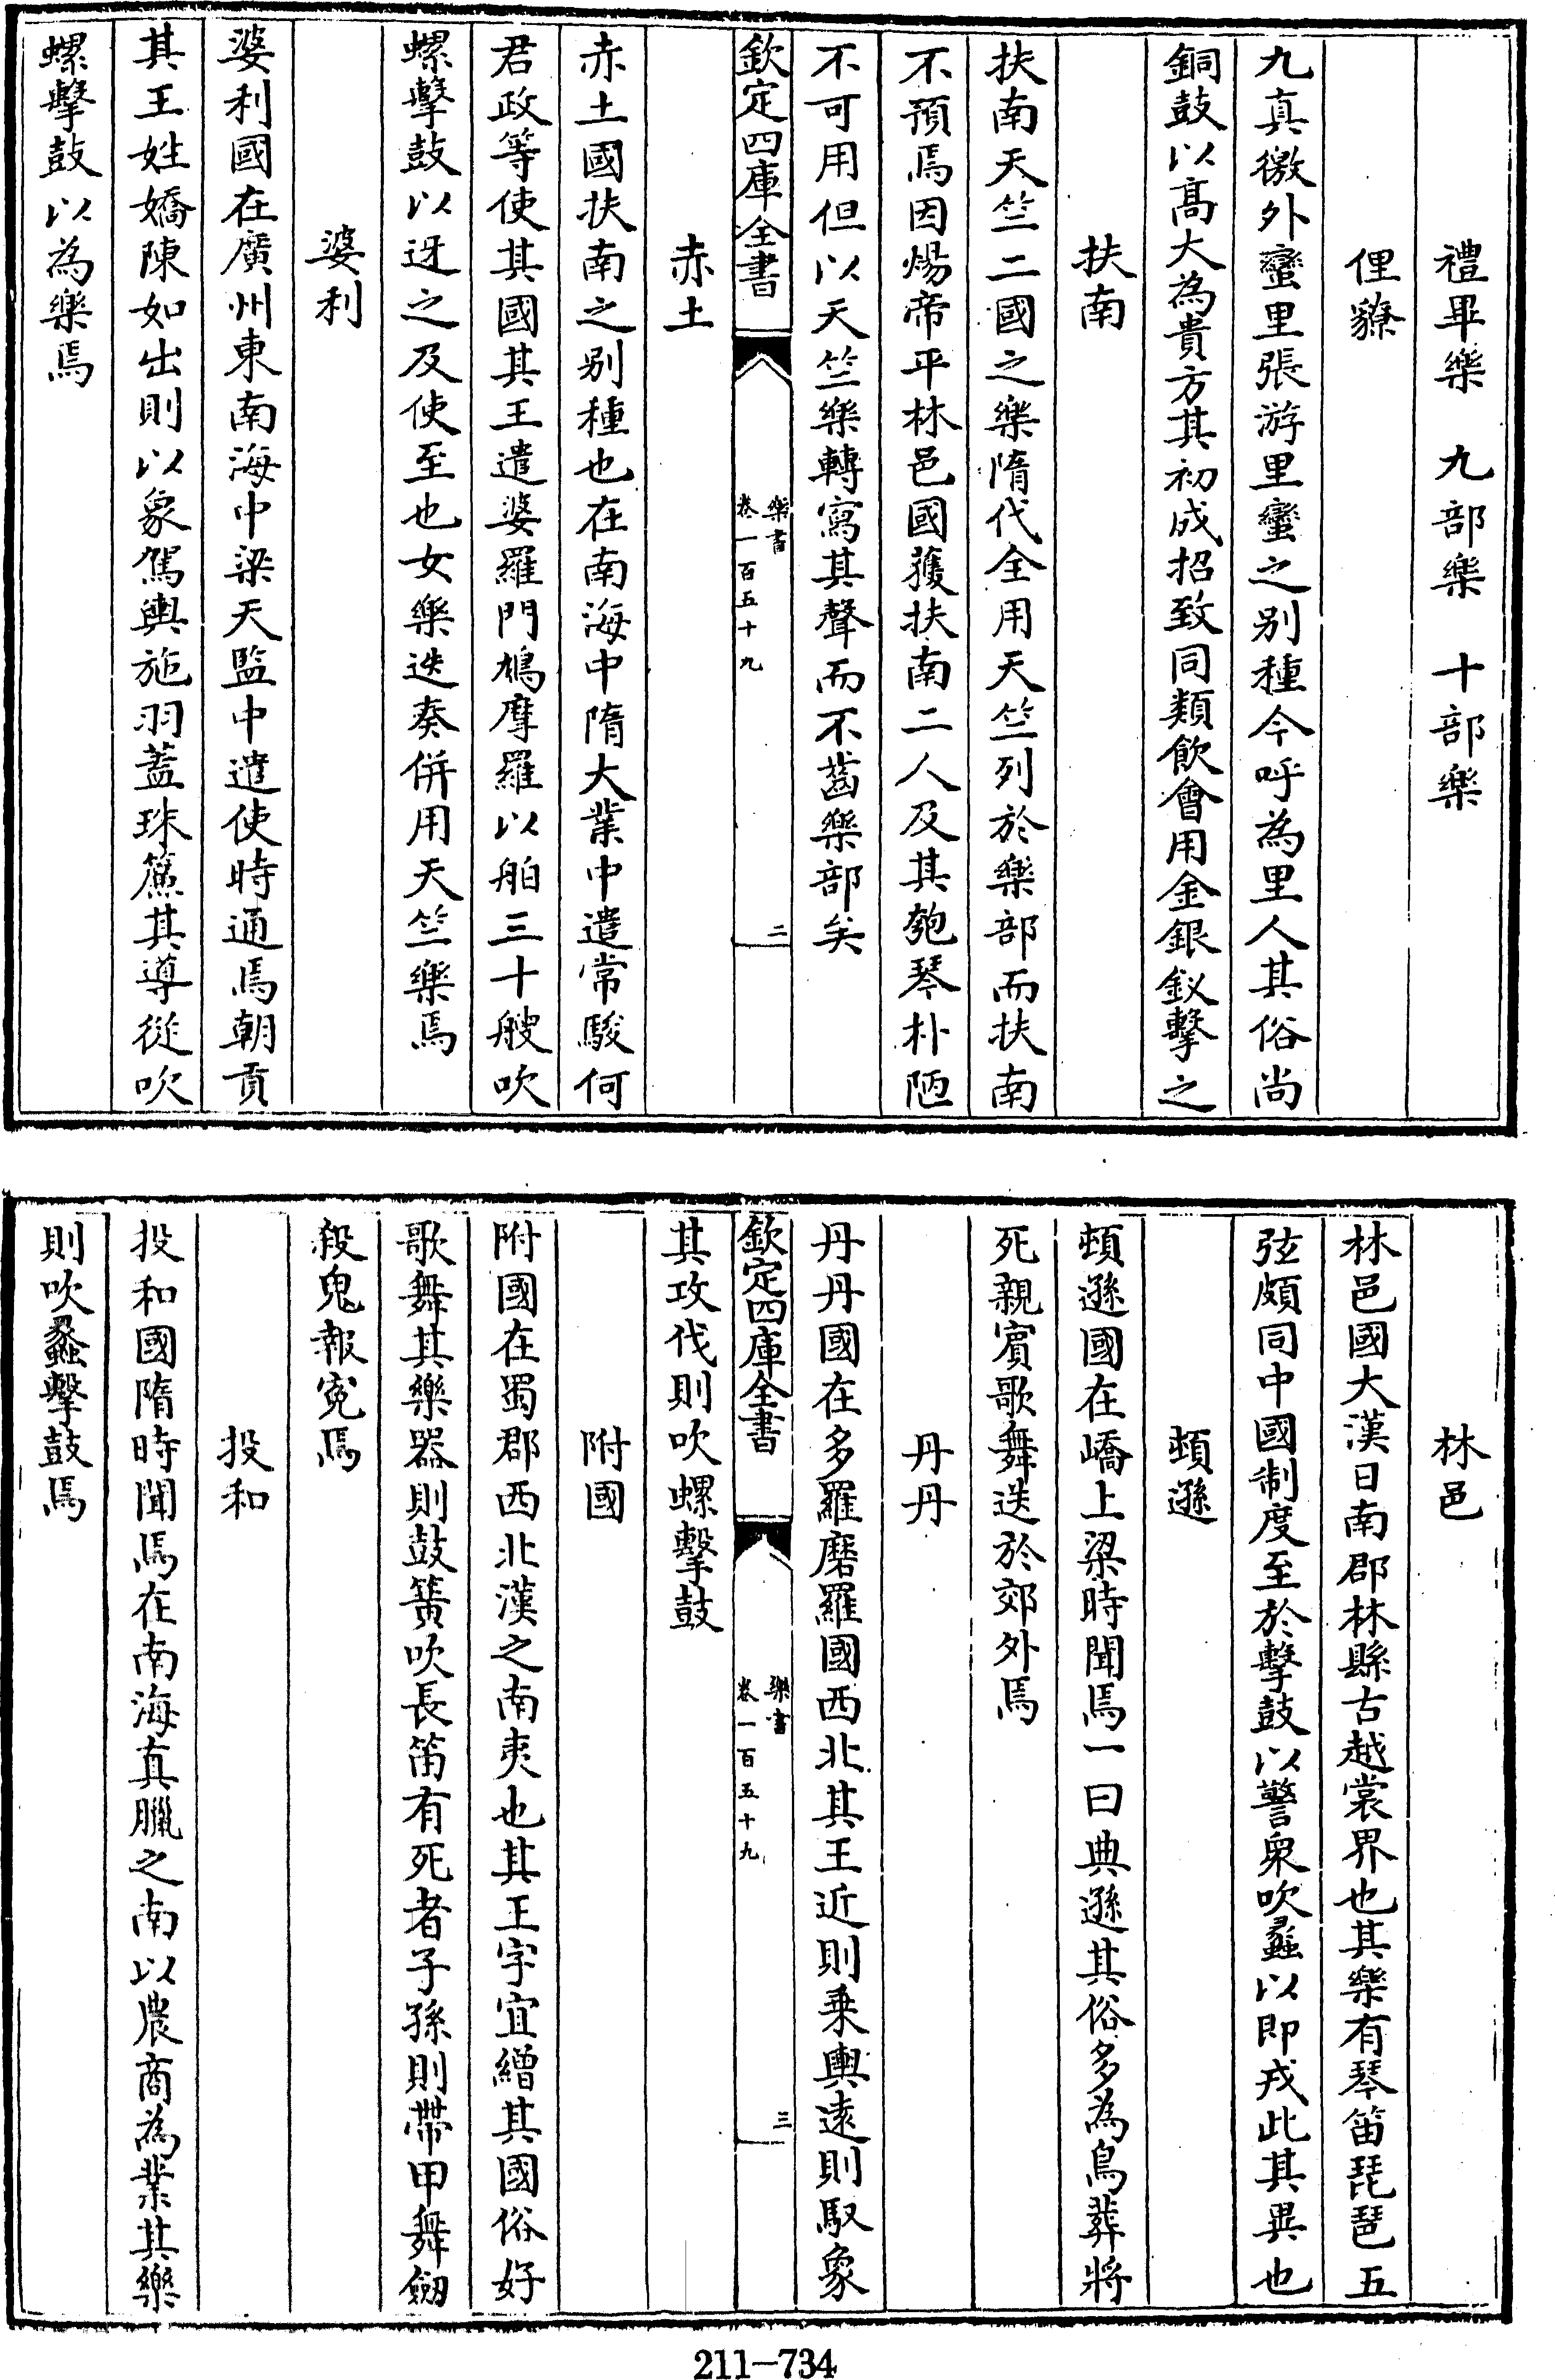 禮畢樂　九部樂　十部樂
俚獠
九真徼外蠻里張游里蠻之别種今呼為里人其俗尚
銅鼓以髙大為貴方其初成招致同類飲會用金銀釵擊之
扶南
扶南天竺二國之樂隋代全用天竺列於樂部而扶南
不預焉因煬帝平林邑國獲扶南二人及其匏琴朴陋
不可用但以天竺樂轉寫其聲而不齒樂部矣
欽定四庫全書
樂書
卷一百五十九
二
赤土
赤土國扶南之别種也在南海中隋大業中遣常駿何
君政等使其國其王遣婆羅門鳩摩羅以舶三十艘吹
螺擊鼓以迓之及使至也女樂迭奏併用天竺樂焉
婆利
婆利國在廣州東南海中梁天監中遣使時通焉朝貢
其王姓嬌陳如出則以象駕輿施羽蓋珠簾其導從吹
螺擊鼓以為樂焉
林邑
林邑國大漢日南郡林縣古越裳界也其樂有琴笛琵琶五
弦頗同中國制度至於擊鼓以警衆吹蠡以即戎此其異也
頓遜
頓遜國在嶠上梁時聞焉一曰典遜其俗多為鳥葬將
死親賓歌舞送於郊外焉
丹丹
丹丹國在多羅磨羅國西北其王近則乗輿逺則馭象
欽定四庫全書
樂書
卷一百五十九
三
其攻伐則吹螺擊鼓
附國
附國在蜀郡西北漢之南夷也其王字宜繒其國俗好
歌舞其樂器則鼓簧吹長笛有死者子孫則帶甲舞劒
殺鬼報寃焉
投和
投和國隋時聞焉在南海真臘之南以農商為業其樂
則吹蠡擊鼓焉
211—734